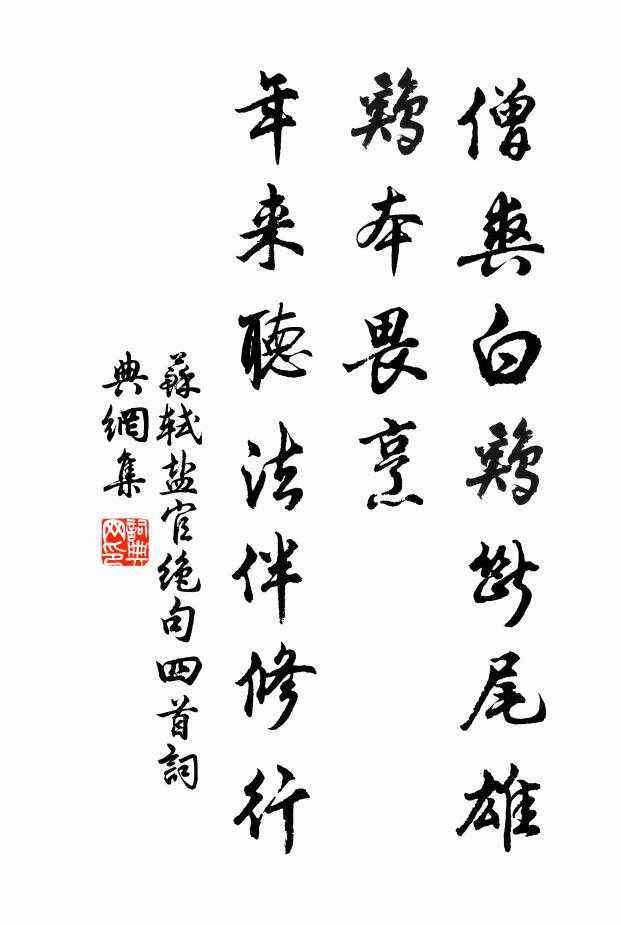 僧爽白鷄斷尾雄
鷄本畏烹
年来聽法伴修行
蘇軾盐官绝句四首詞
典網集
詞典
网印